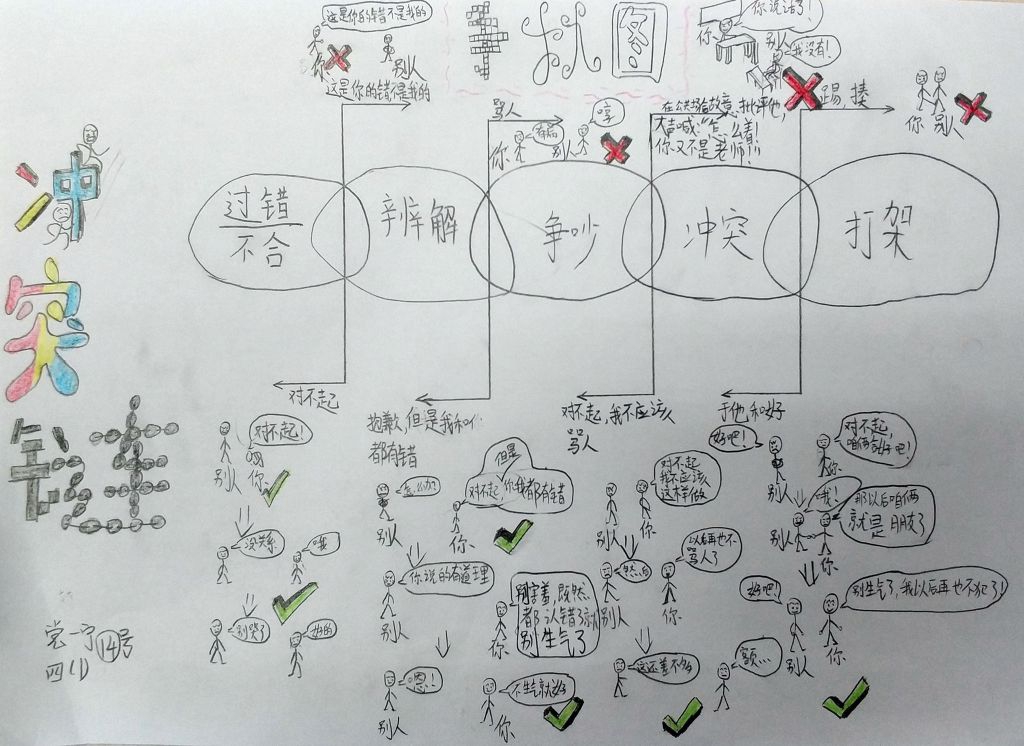 冲突链
这是你的错不是我的
你
别人
这是你的错不是我的
事状图
你说话了!
我没有!
你
别人
骂人
你
别人
哼
在公共场合故意批评他,
大声喊:“怎么着!
你又不是老师!!!
踢 揍
你 别人
过错
不合
辨解
争吵
冲突
打架
对不起
抱歉,但是我和你
都有错
对不起,我不应该
骂人
于他和好
对不起!
别人 你
没关系
哦
别哭了
好的
但是
对不起,你我都有错
别人
你
你说的有道理
别人
别害羞,既然
都认错了就
别生气了
你
嗯!
别人
不生气就好
你
对不起
我不应该
这样做
别人
你
以后再也不
骂人了
别人
你
这还差不多
额...
好吧!
对不起,
咱俩和好吧!
别人
你
哦!
那以后咱俩
就是朋友了
别人
你
好吧!
别生气了,我以后再也不犯了!
别人
你
尝一宁 14号
四(1)